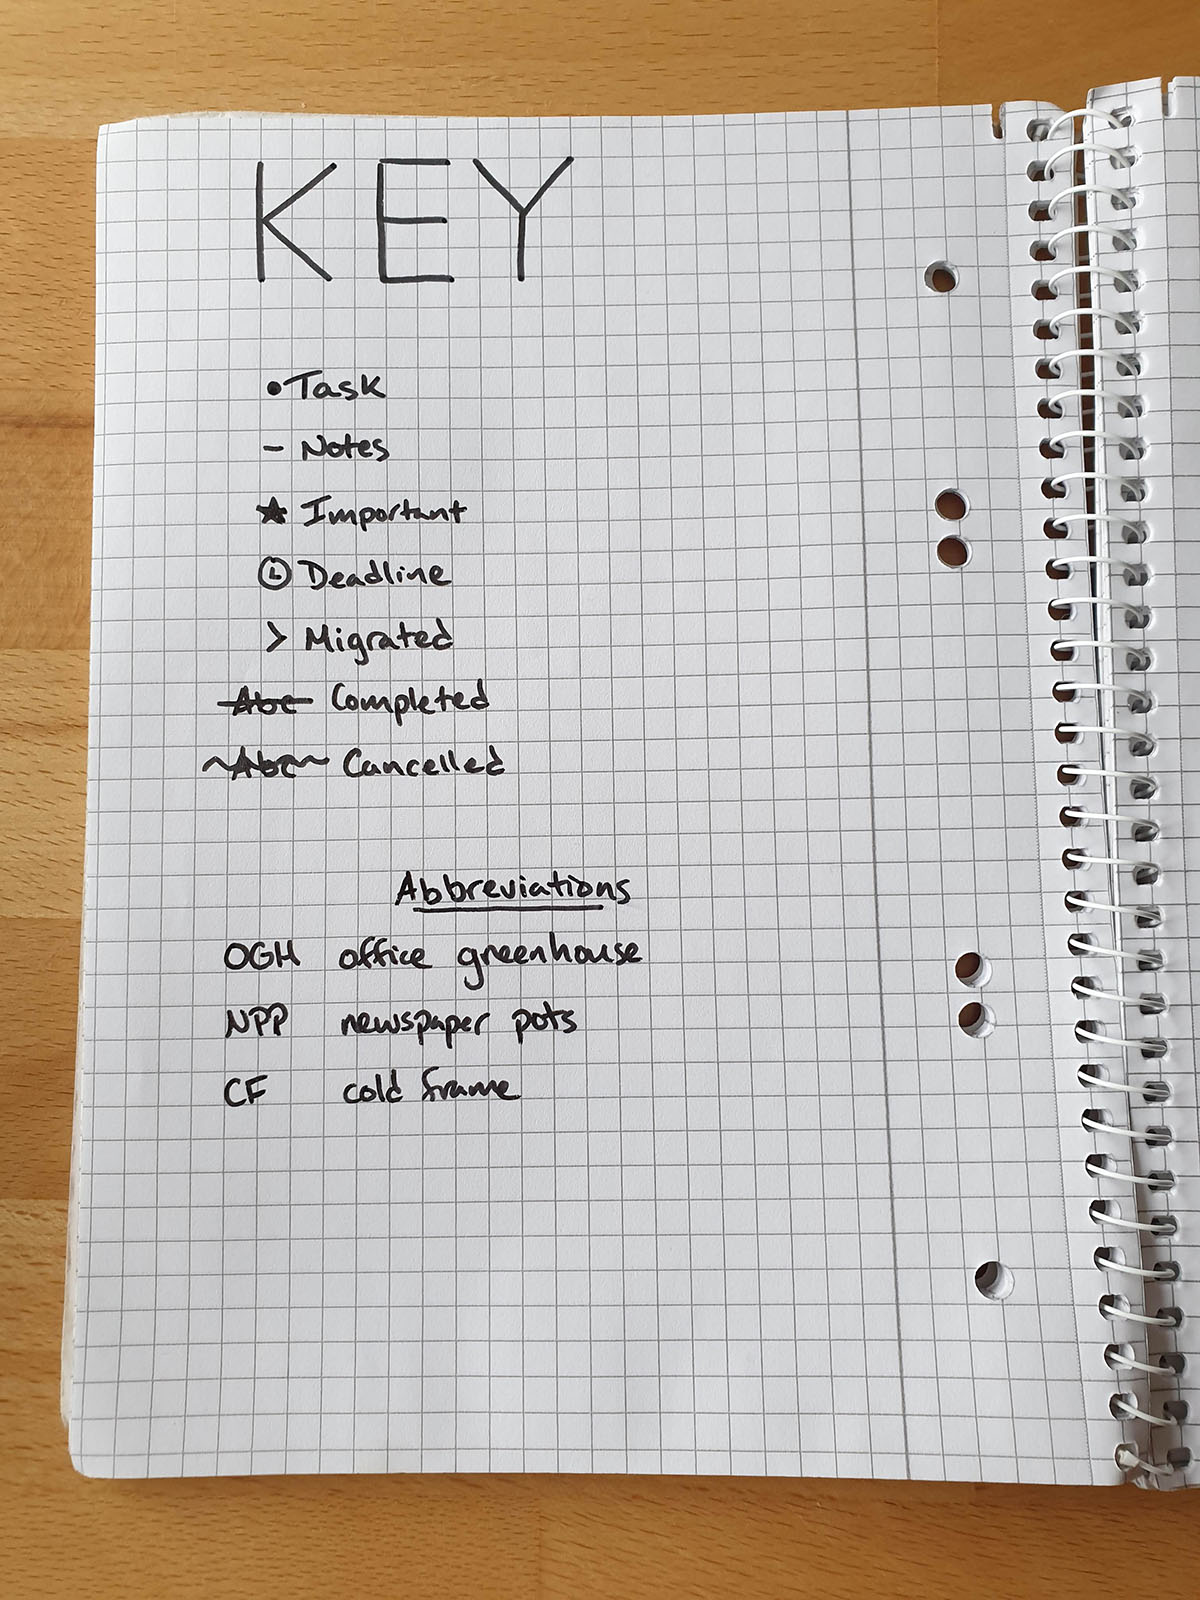 KEY
• Task
- Notes
★ Important
🕒 Deadline
> Migrated
Abc Completed
~Abc~ Cancelled
Abbreviations
OGH office greenhouse
NPP newspaper pots
CF cold frame